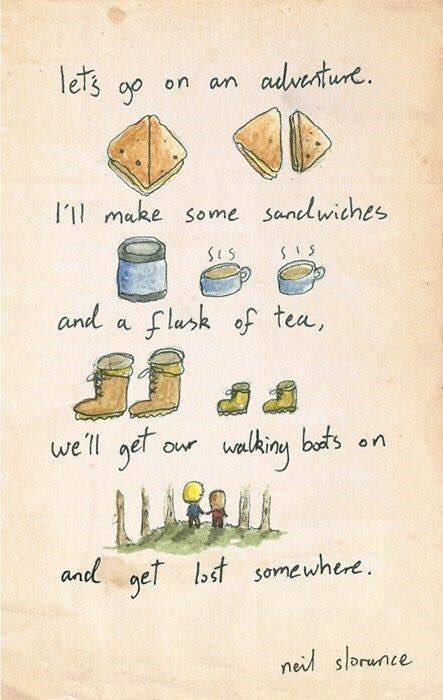 let's go on an adventure.
I'll make some sandwiches
and a flask of tea,
we'll get our walking boots on
and get lost somewhere.
neil slorance